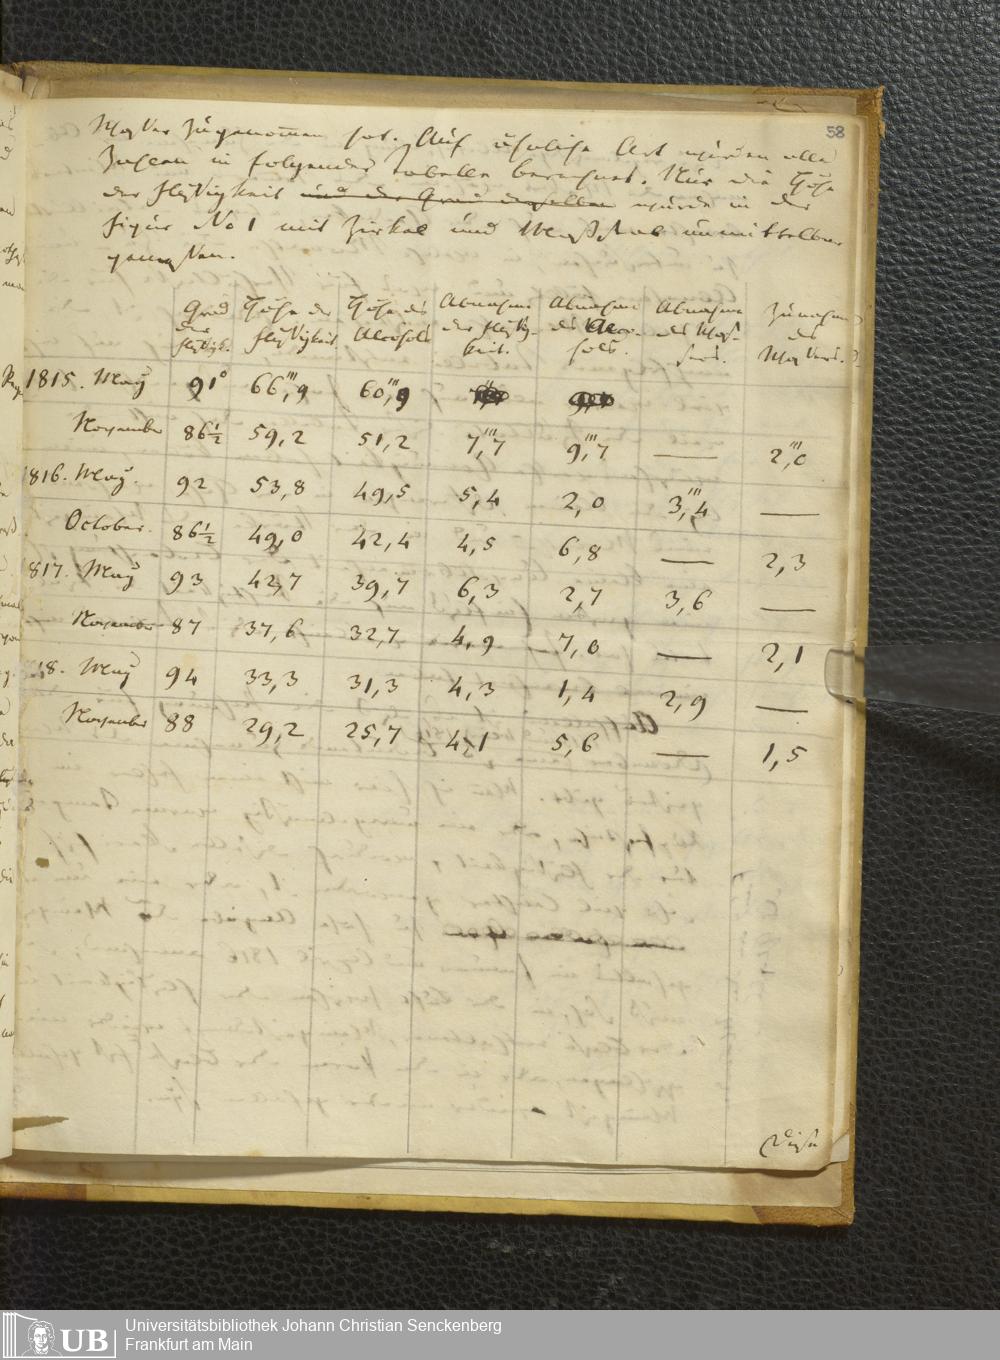 58
Wassers zugenommen hat. Auf ähnliche Art wurden alle
Zahlen in folgender Tabelle berechnet. Nur die Höhe
der Flüssigkeit und der Grad derselben wurde in der
Figur No 1 mit Zirkel und Maaßstab unmittelbar
gemessen.
Grad der Flüssigk. Höhe der Flüssigkeit Höhe des Alcohols Abnahme der Flüssigkeit. Abnahme des Alcohols. Abnahme des Wassers. Zunahme des Wassers.
1815. May 91° 66‴,9 60‴,9
November 86½ 59,2 51,2 7‴,7 9‴,7 — 2‴,0
1816. May. 92 53,8 49,5 5,4 2,0 3‴,4 —
October. 86½ 49,0 42,4 4,5 6,8 — 2,3
817. May 93 42,7 39,7 6,3 2,7 3,6 —
November 87 37,6 32,7 4,9 7,0 — 2,1
18. May 94 33,3 31,3 4,3 1,4 2,9 —
November 88 29,2 25,7 4,1 5,6 — 1,5
Diese
UB
Universitätsbibliothek Johann Christian Senckenberg
Frankfurt am Main